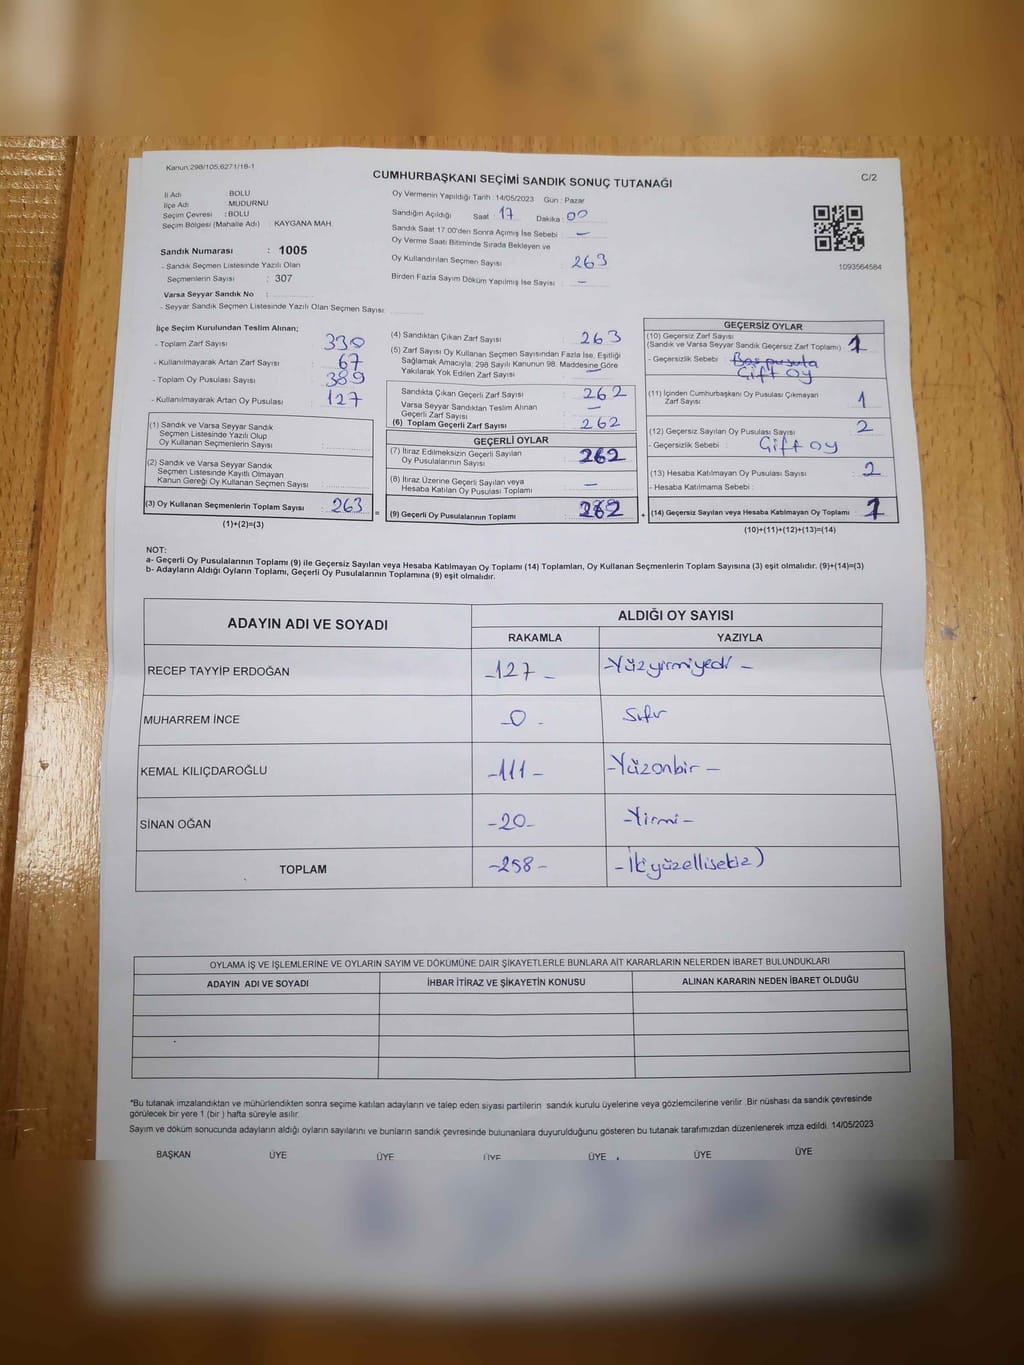 Kanun:298/105,6271/18-1
CUMHURBAŞKANI SEÇİMİ SANDIK SONUÇ TUTANAĞI
C/2
İl Adı : BOLU
İlçe Adı : MUDURNU
Seçim Çevresi : BOLU
Seçim Bölgesi (Mahalle Adı) : KAYGANA MAH.
Sandık Numarası : 1005
- Sandık Seçmen Listesinde Yazılı Olan
Seçmenlerin Sayısı : 307
Varsa Seyyar Sandık No :
- Seyyar Sandık Seçmen Listesinde Yazılı Olan Seçmen Sayısı:
Oy Vermenin Yapıldığı Tarih : 14/05/2023 Gün : Pazar
Sandığın Açıldığı Saat : 17 Dakika : 00
Sandık Saat 17.00'den Sonra Açımış İse Sebebi : —
Oy Verme Saati Bitiminde Sırada Bekleyen ve
Oy Kullandırılan Seçmen Sayısı 263
Birden Fazla Sayım Döküm Yapılmış İse Sayısı : -
1093564584
İlçe Seçim Kurulundan Teslim Alınan;
- Toplam Zarf Sayısı : 330
- Kullanılmayarak Artan Zarf Sayısı : 67
- Toplam Oy Pusulası Sayısı : 389
- Kullanılmayarak Artan Oy Pusulası : 127
(1) Sandık ve Varsa Seyyar Sandık
Seçmen Listesinde Yazılı Olup
Oy Kullanan Seçmenlerin Sayısı :
(2) Sandık ve Varsa Seyyar Sandık
Seçmen Listesinde Kayıtlı Olmayan
Kanun Gereği Oy Kullanan Seçmen Sayısı :
(3) Oy Kullanan Seçmenlerin Toplam Sayısı : 263
(1)+(2)=(3)
(4) Sandıktan Çıkan Zarf Sayısı : 263
(5) Zarf Sayısı Oy Kullanan Seçmen Sayısından Fazla İse, Eşitliği
Sağlamak Amacıyla, 298 Sayılı Kanunun 98. Maddesine Göre
Yakılarak Yok Edilen Zarf Sayısı : —
Sandıkta Çıkan Geçerli Zarf Sayısı : 262
Varsa Seyyar Sandıktan Teslim Alınan
Geçerli Zarf Sayısı : —
(6) Toplam Geçerli Zarf Sayısı : 262
GEÇERLİ OYLAR
(7) İtiraz Edilmeksizin Geçerli Sayılan
Oy Pusulalarının Sayısı : 262
(8) İtiraz Üzerine Geçerli Sayılan veya
Hesaba Katılan Oy Pusulası Toplamı : —
(9) Geçerli Oy Pusulalarının Toplamı : 262
GEÇERSİZ OYLAR
(10) Geçersiz Zarf Sayısı
(Sandık ve Varsa Seyyar Sandık Geçersiz Zarf Toplamı) : 1
- Geçersizlik Sebebi : Boş pusula
Çift Oy
(11) İçinden Cumhurbaşkanı Oy Pusulası Çıkmayan
Zarf Sayısı : 1
(12) Geçersiz Sayılan Oy Pusulası Sayısı : 2
- Geçersizlik Sebebi : Çift oy
(13) Hesaba Katılmayan Oy Pusulası Sayısı : 2
- Hesaba Katılmama Sebebi :
(14) Geçersiz Sayılan veya Hesaba Katılmayan Oy Toplamı :
(10)+(11)+(12)+(13)=(14)
NOT:
a- Geçerli Oy Pusulalarının Toplamı (9) ile Geçersiz Sayılan veya Hesaba Katılmayan Oy Toplamı (14) Toplamları, Oy Kullanan Seçmenlerin Toplam Sayısına (3) eşit olmalıdır. (9)+(14)=(3)
b- Adayların Aldığı Oyların Toplamı, Geçerli Oy Pusulalarının Toplamına (9) eşit olmalıdır.
ADAYIN ADI VE SOYADI
ALDIĞI OY SAYISI
RAKAMLA YAZIYLA
RECEP TAYYİP ERDOĞAN -127- -Yüzyirmiyedi-
MUHARREM İNCE -0- Sıfır
KEMAL KILIÇDAROĞLU -111- -Yüzonbir-
SİNAN OĞAN -20- -Yirmi-
TOPLAM -258- -İkiyüzellisekiz)
OYLAMA İŞ VE İŞLEMLERİNE VE OYLARIN SAYIM VE DÖKÜMÜNE DAİR ŞİKAYETLERLE BUNLARA AİT KARARLARIN NELERDEN İBARET BULUNDUKLARI
ADAYIN ADI VE SOYADI İHBAR İTİRAZ VE ŞİKAYETİN KONUSU ALINAN KARARIN NEDEN İBARET OLDUĞU
*Bu tutanak imzalandıktan ve mühürlendikten sonra seçime katılan adayların ve talep eden siyasi partilerin sandık kurulu üyelerine veya gözlemcilerine verilir .Bir nüshası da sandık çevresinde
görülecek bir yere 1 (bir ) hafta süreyle asılır.
Sayım ve döküm sonucunda adayların aldığı oyların sayılarını ve bunların sandık çevresinde bulunanlara duyurulduğunu gösteren bu tutanak tarafımızdan düzenlenerek imza edildi. 14/05/2023
BAŞKAN ÜYE ÜYE ÜYE ÜYE ÜYE ÜYE